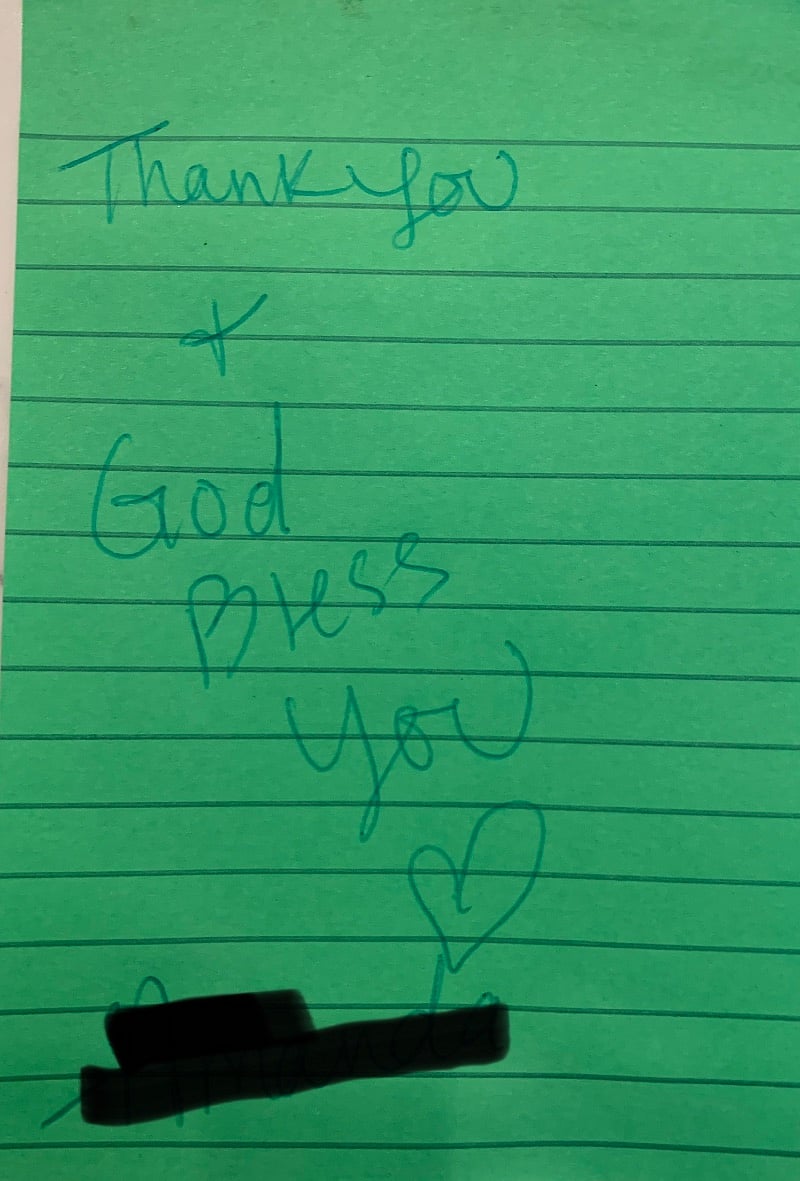 Thank you
+
God
Bless
you